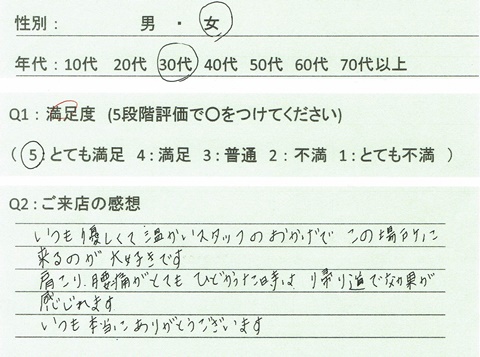 性別： 男 ・ 女
年代：10代 20代 30代 40代 50代 60代 70代以上
Q1：満足度 (5段階評価で〇をつけてください)
( 5：とても満足 4：満足 3：普通 2：不満 1：とても不満 )
Q2：ご来店の感想
いつも優しくて温かいスタッフのおかげで この場所に
来るのが大好きです
肩こり、腰痛がとてもひどかった時は 帰り道で効果が
感じれます
いつも本当にありがとうございます